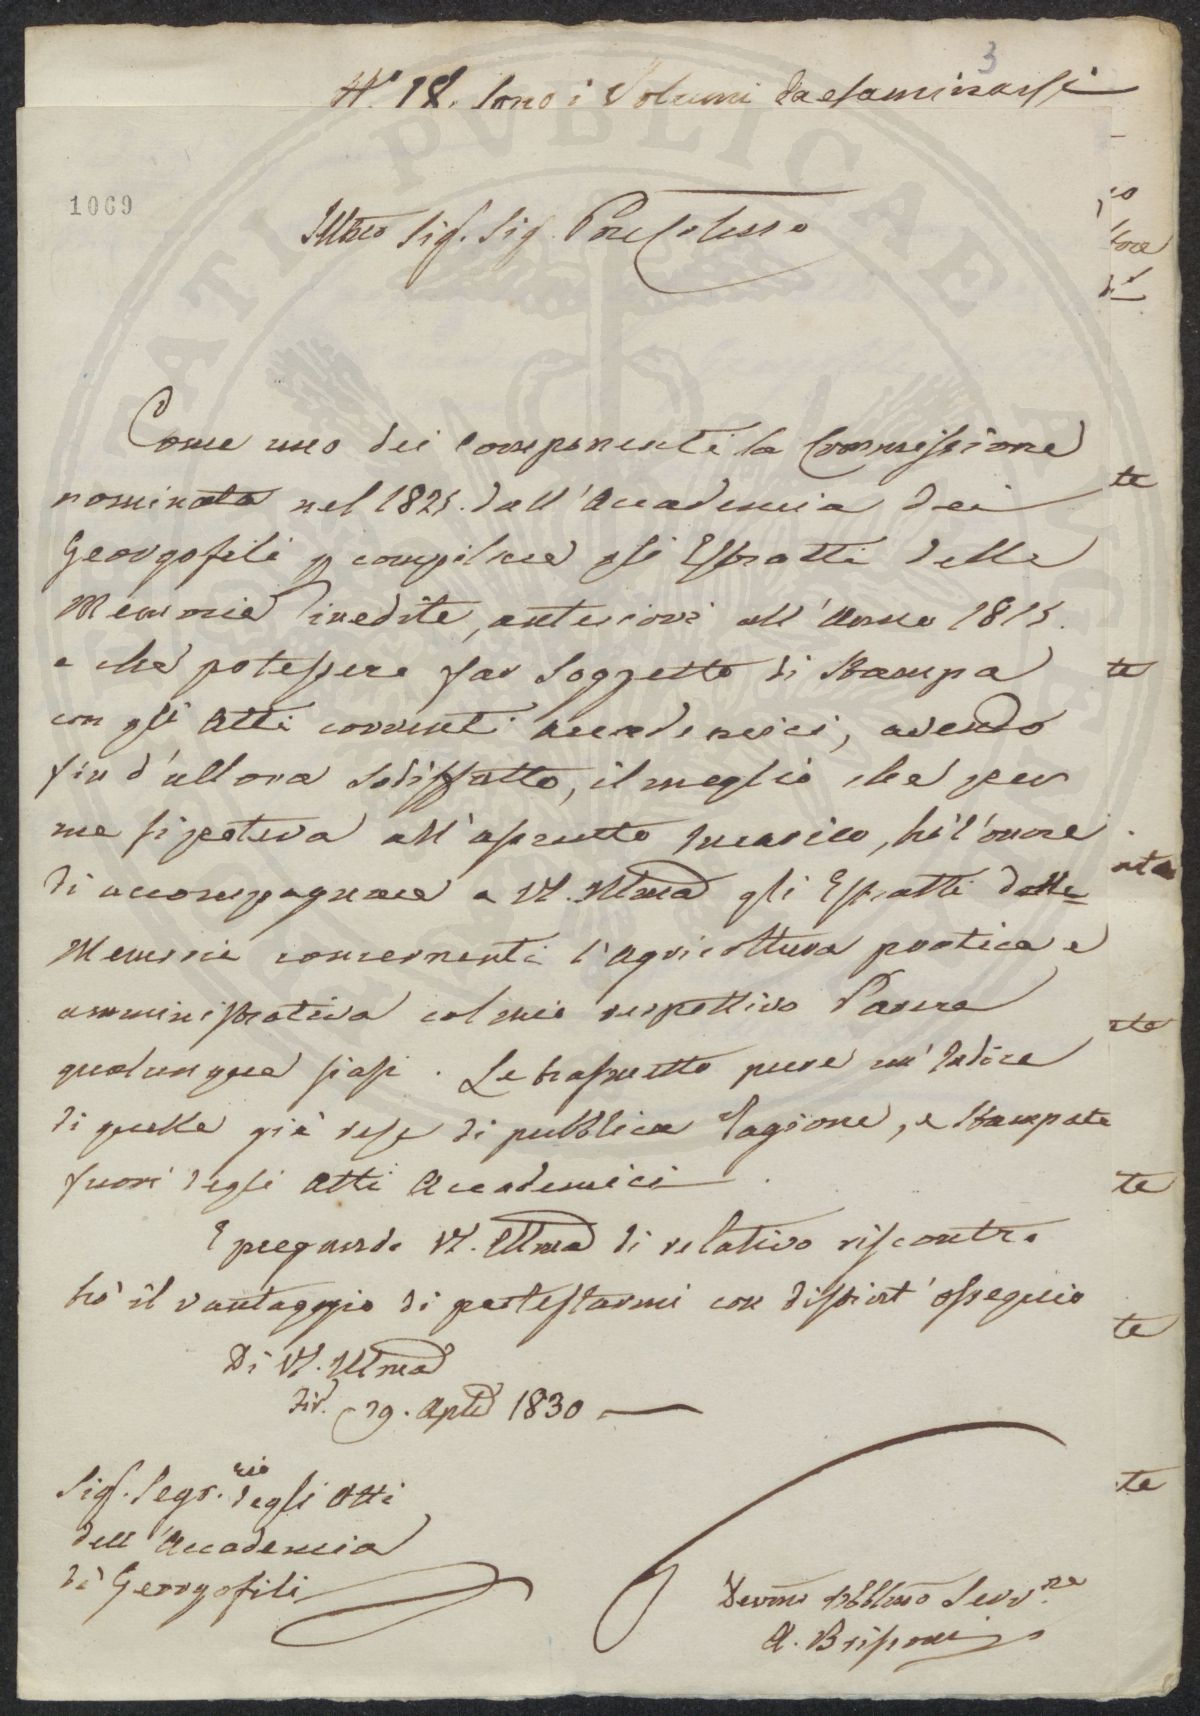 3
N.º 18. Sono i Volumi da esaminarsi
1069
Illmo Sig. Sig. Pne Colmo
Come uno dei componenti la Commissione
nominata nel 1825. dall'Accademia dei
Georgofili p compilare gli Estratti delle
Memorie inedite, anteriori all'Anno 1815.
e che potessero far soggetto di Stampa
con gli Atti correnti Accademici, avendo
fin d'allora sodisfatto, il meglio che per
me si poteva all'assunto Incarico, hò l'onore
di accompagnare a VS. Illma gli Estratti delle
Memorie concernenti l'Agricoltura pratica e
amministrativa col mio respettivo Parere
qualunque siasi. Le trasmetto pure un'Indice
di quelle già rese di pubblica ragione, e stampate
fuori degli Atti Accademici.
E pregando VS. Illma di relativo riscontro
hò il vantaggio di protestarmi con distint'ossequio
Di VS. Illma
29. Aple 1830
Sig. Segr.rio degli Atti
dell'Accademia
dei Georgofili
Devmo Obblmo Serv.re
te
te
te
te
te
te
PVBLICAE